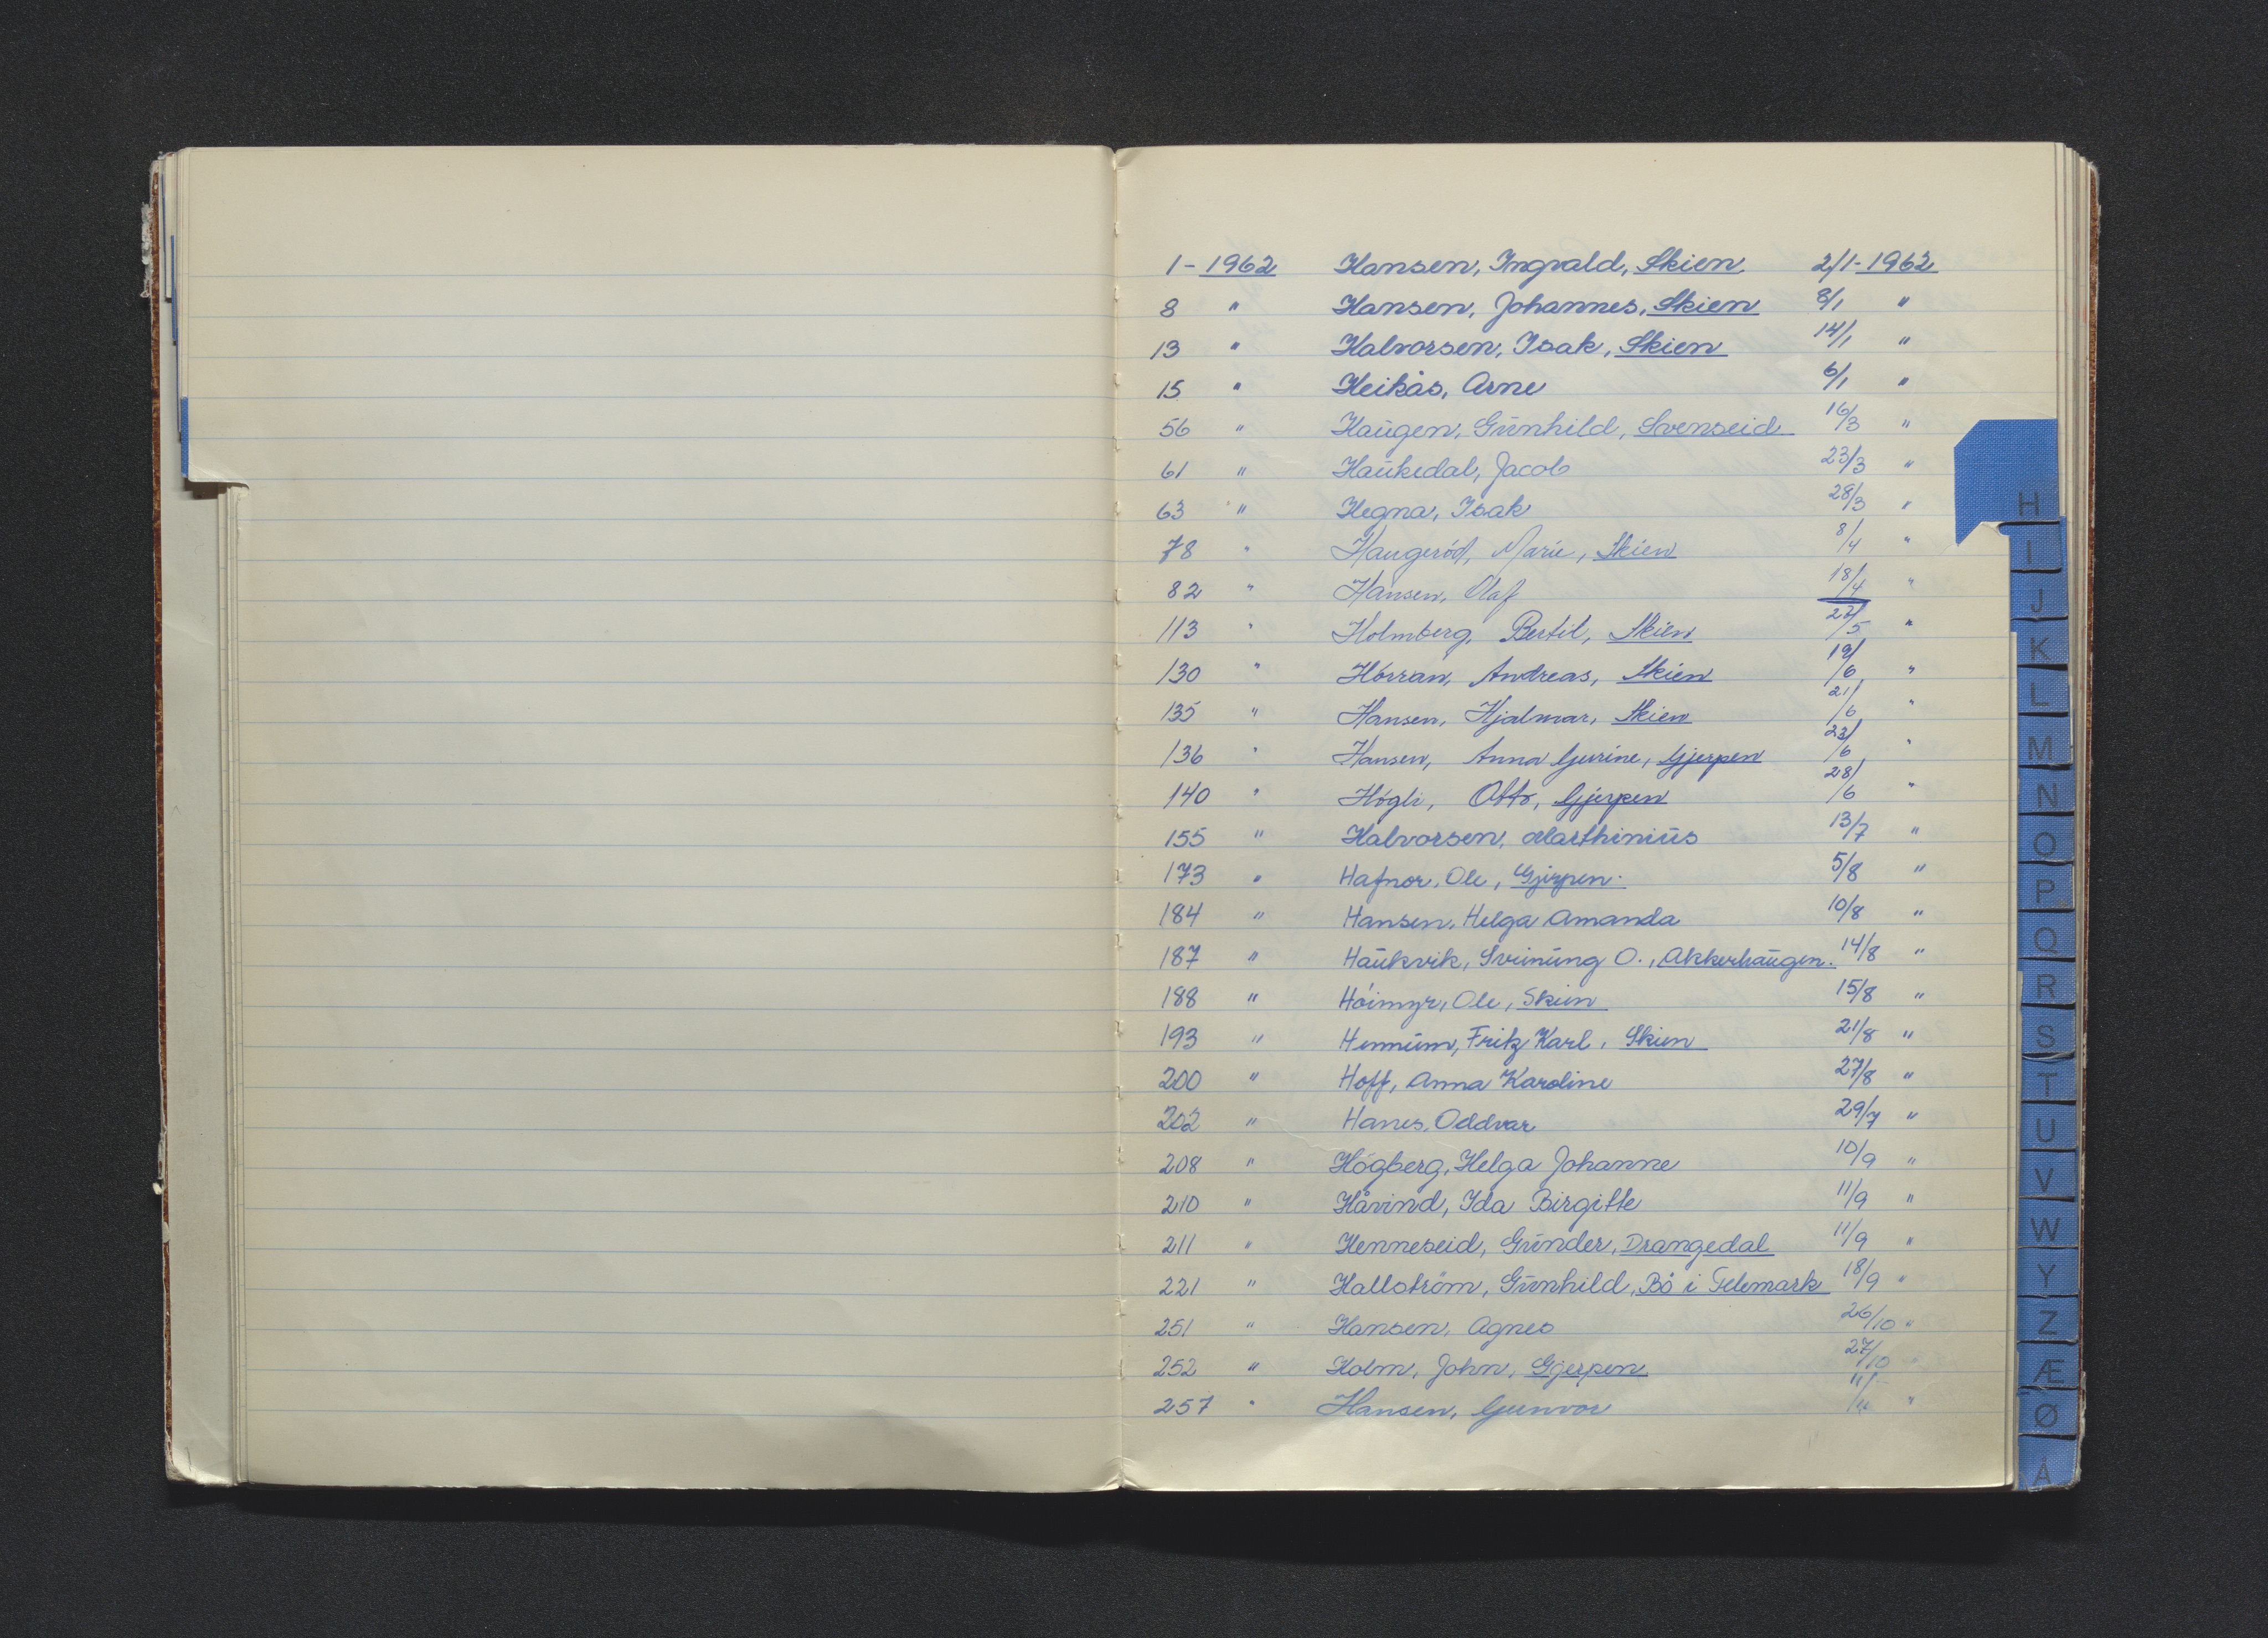 1 - 1962 Hansen, Ingvald, Skien 2/1 - 1962
8 " Hansen, Johannes, Skien 8/1 "
13 " Halvorsen, Isak, Skien 14/1 "
15 " Heikås, Arne 6/1 "
56 " Haugen, Gunhild, Svenseid 16/3 "
61 " Haukedal, Jacob 23/3 "
63 " Hegna, Isak 28/3 "
78 " Haugerød, Marie, Skien 8/4 "
82 " Hansen, Olaf 18/4 "
113 " Holmberg, Bertil, Skien 22/5 "
130 " Andreas, Skien 19/6 "
135 " Hansen, Hjalmar, Skien 21/6 "
136 " Hansen, Anna Gurine, Gjerpen 23/6 "
140 " Høgli, Otto, Gjerpen 28/6 "
155 " Halvorsen, Marthinius 13/7 "
173 " Hafnor, Ole, Gjerpen. 5/8 "
184 " Hansen, Helga Amanda 10/8 "
187 " Haukvik, Sveinung O., Akkerhaugen. 14/8 "
188 " Høimyr, Ole, Skien 15/8 "
193 " Hennum, Fritz Karl, Skien 21/8 "
200 " Hoff, Anna Karoline 27/8 "
202 " Hanes, Oddvar 29/7 "
208 " Høgberg, Helga Johanne 10/9 "
210 " Håvind, Ida Birgitte 11/9 "
211 " Henneseid, Gunder, Drangedal 11/9 "
221 " Hallström, Gunhild, Bø i Telemark 18/9 "
251 " Hansen, Agnes 26/10 "
252 " Holm, John, Gjerpen 27/10 "
257 " Hansen, Gunvor 11/11 "
H
I
J
K
L
M
N
O
P
Q
R
S
T
U
V
W
Y
Z
Æ
Ø
Å